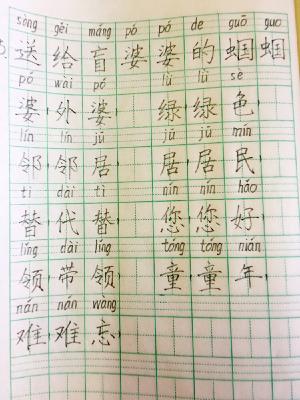 sòng gěi máng pó po de guō guo
送给盲婆婆的蝈蝈
pó wài pó lǜ lǜ sè
婆外婆 绿绿色
lín lín jū jū jū mín
邻邻居 居居民
tì dài tì nín nín hǎo
替代替 您您好
lǐng dài lǐng tóng tóng nián
领带领 童童年
nán nán wàng
难难忘